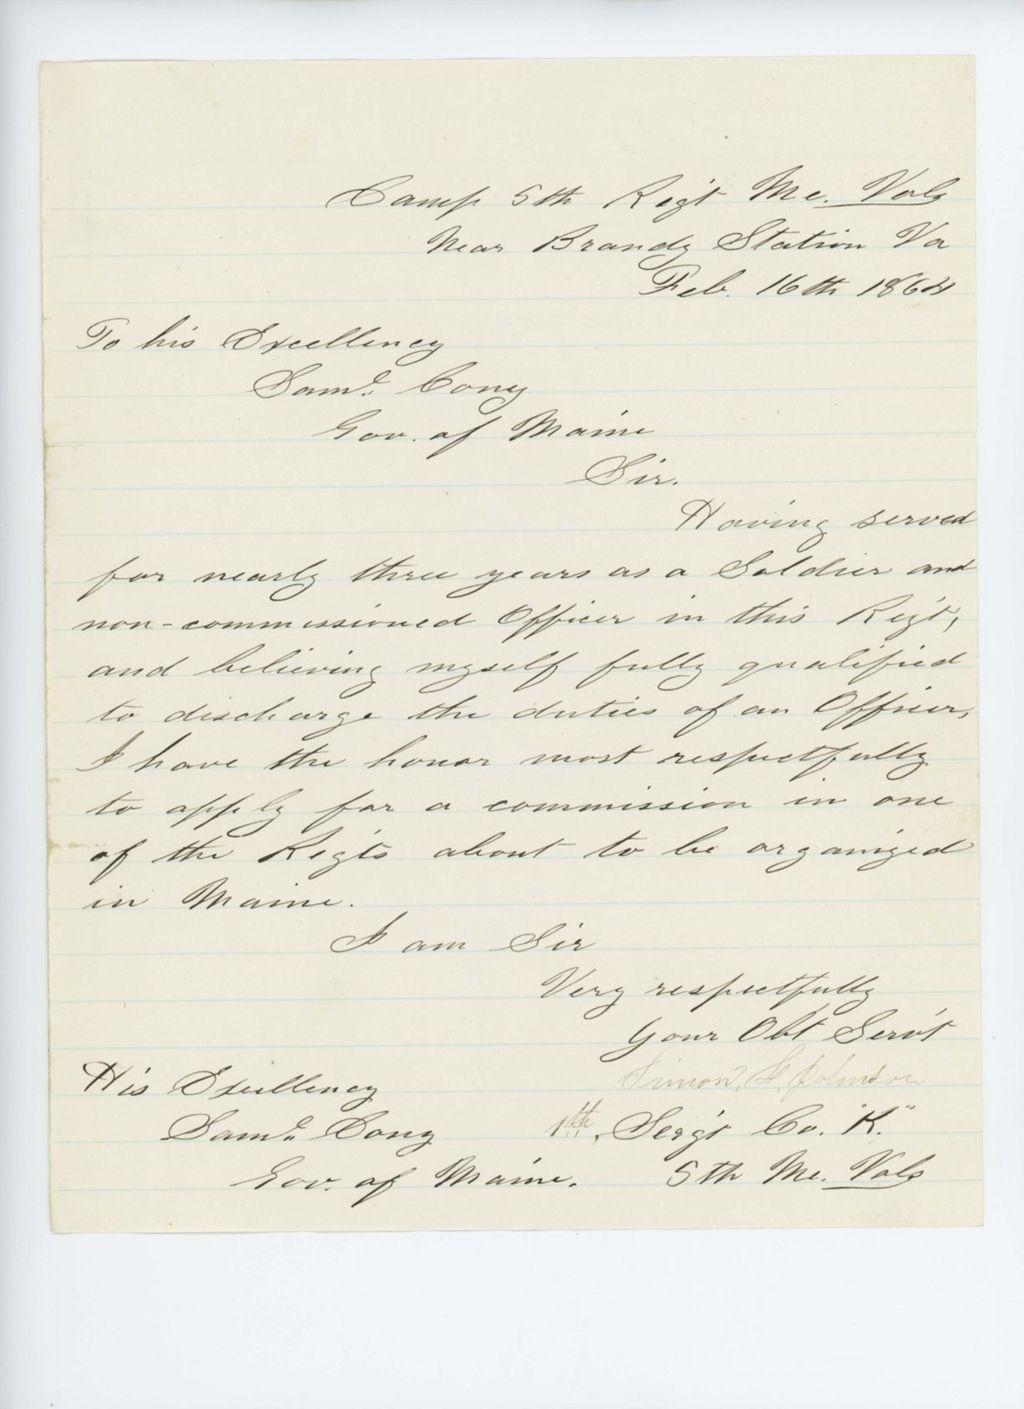 Camp 5th Regt Me. Vols
Near Brandy Station Va
Feb. 16th 1864
To his Excellency
Saml. Cony
Gov. of Maine
Sir.
Having served
for nearly three years as a Soldier and
non-commissioned Officer in this Regt,
and believing myself fully qualified
to discharge the duties of an Officer,
I have the honor most respectfully
to apply for a commission in one
of the Regts about to be organized
in Maine.
I am Sir
Very respectfully
Your Obt Servt
Simon Johnson
His Excellency
Saml. Cony
Gov. of Maine.
1th, Sergt Co. "K."
5th Me. Vols